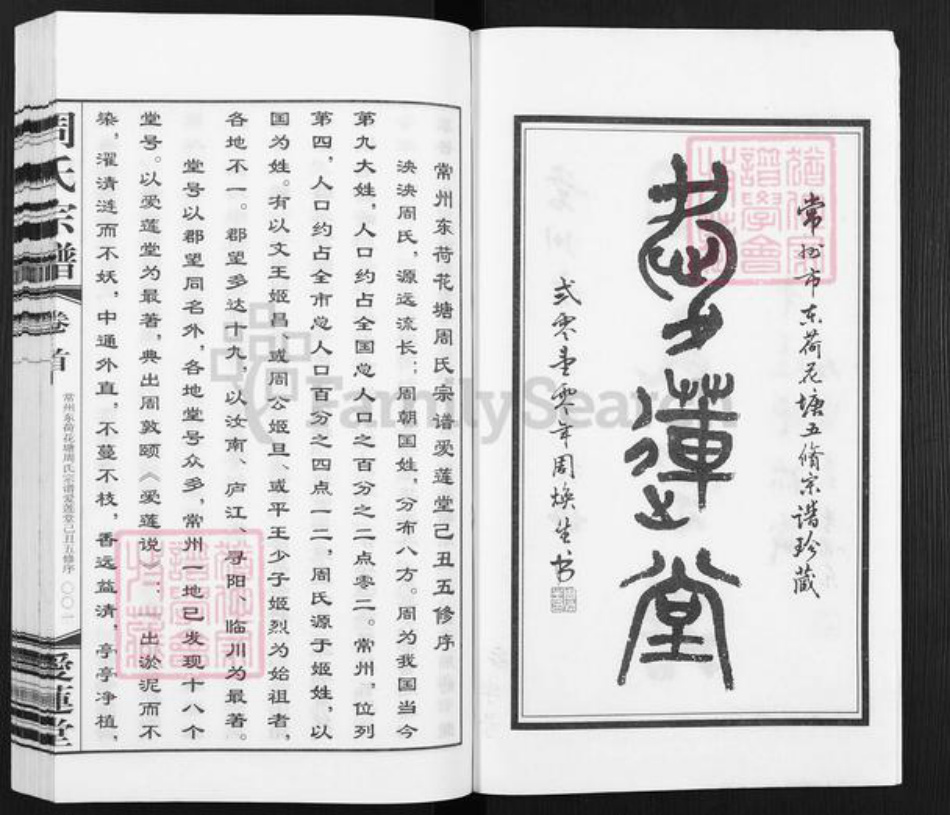 常州市东荷花塘五修宗谱珍藏
爱莲堂
弍零壹零年周焕生书
常州东荷花塘周氏宗谱爱莲堂己丑五修序
泱泱周氏，源远流长；周朝国姓，分布八方。周为我国当今
第九大姓，人口约占全国总人口之百分之二点零二。常州，位列
第四，人口约占全市总人口百分之四点一二，周氏源于姬姓，以
国为姓。有以文王姬昌、或周公姬旦、或平王少子姬烈为始祖者，
各地不一。郡望多达十九，以汝南、庐江、寻阳、临川为最著。
堂号以郡望同名外，各地堂号众多，常州一地已发现十八个
堂号。以爱莲堂为最著，典出周敦颐《爱莲说》：“出淤泥而不
染，濯清涟而不妖，中通外直，不蔓不枝，香远益清，亭亭净植，
周氏宗谱
卷首
常州东荷花塘周氏宗谱爱莲堂己丑五修序
〇〇一
愛蓮堂
FamilySearch